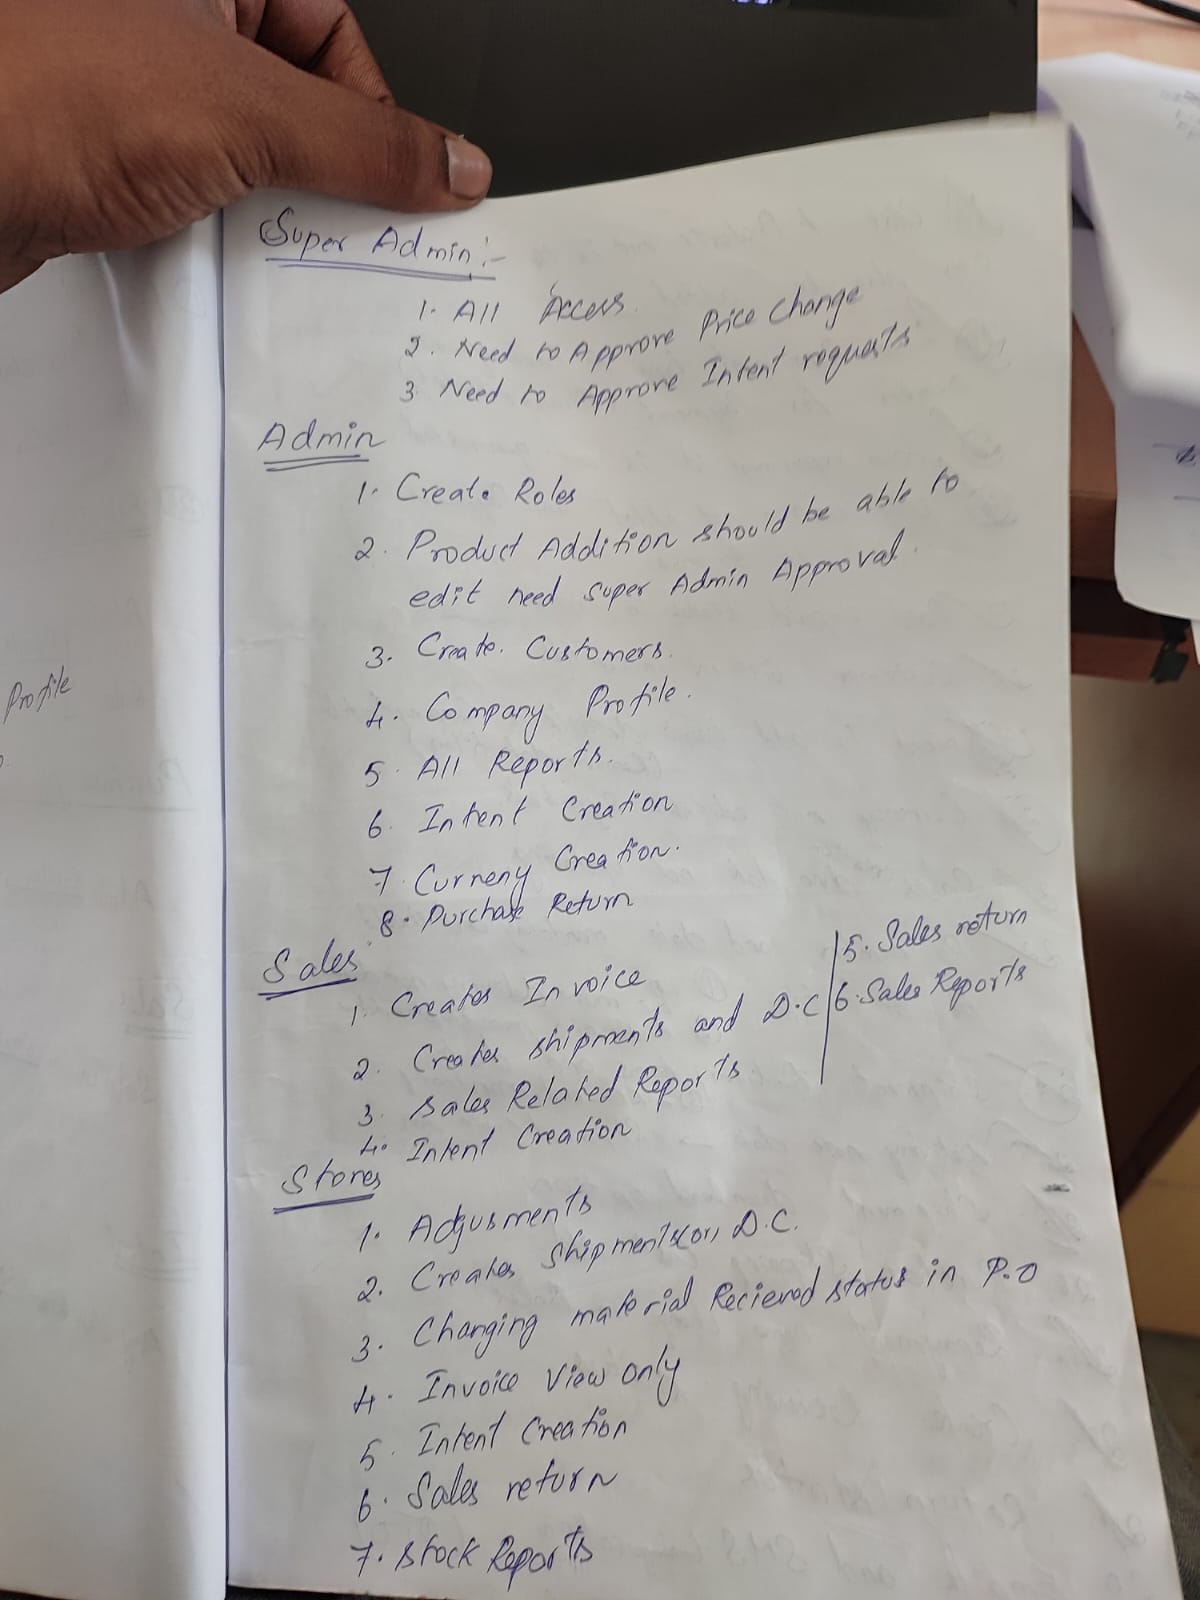 Profile
Super Admin:-
1. All Access.
2. Need to Approve Price Change
3. Need to Approve Intent requests
Admin
1. Create Roles
2. Product Addition should be able to
edit need Super Admin Approval.
3. Create. Customers.
4. Company Profile.
5. All Reports.
6. Intent Creation
7. Curreny Creation.
8. Purchase Return
Sales
1. Creates Invoice
2. Creates shipments and D.C
3. Sales Related Reports
4. Intent Creation
5. Sales return
6. Sales Reports
Stores
1. Adjusments
2. Creates Shipments(or) D.C.
3. Changing material Recieved status in P.O
4. Invoice View only
5. Intent Creation
6. Sales return
7. Stock Reports